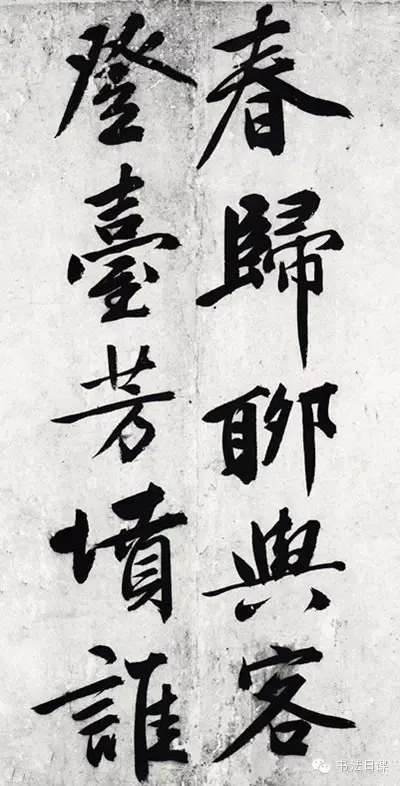 春歸聊與客
登臺芳墳誰
书法日课